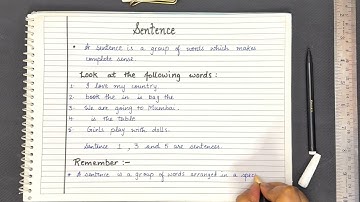 Sentence
* A sentence is a group of words which makes
complete sense.
Look at the following words:
1. I love my country.
2. book the in is bag the
3. We are going to Mumbai.
4. is the table
5. Girls play with dolls.
Sentence 1, 3 and 5 are sentences.
Remember :-
* A sentence is a group of words arranged in a spec